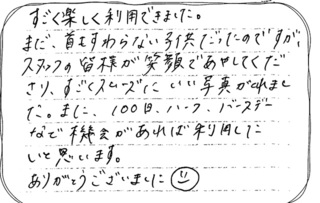 すごく楽しく利用できました。
まだ、首もすわらない子供だったのですが、
スタッフの皆様が笑顔であやしてくだ
さり、すごくスムーズに いい写真がとれまし
た。また、100日、ハーフ、バースデー
など機会があれば利用した
いと思います。
ありがとうございました